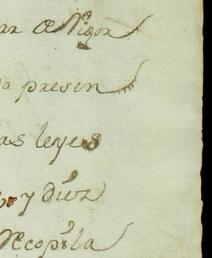 ar Vigor
presen
as leyes
y diez
Recopila